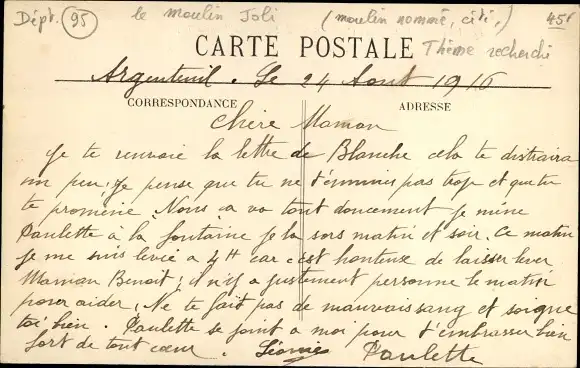 Dépt. 95 le moulin Joli (moulin nommé, cité,) 45f
CARTE POSTALE Thème recherché
Argenteuil. Le 24 Aout 1916
CORRESPONDANCE ADRESSE
Chère Maman
Je te renvoie la lettre de Blanche cela te distraira
un peu; je pense que tu ne t'ennuies pas trop et que tu
te promène. Nous ca va tout doucement je mène
Paulette à la fontaine je la sors matin et soir. Ce matin
je me suis levée a 4H car c'est honteux de laisser lever
Maman Benoit; il n'y a justement personne le matin
pour aider; Ne te fait pas de mauvais sang et soigne
toi bien. Paulette se joint a moi pour t'embrasser bien
fort de tout cœur. Léonie Paulette